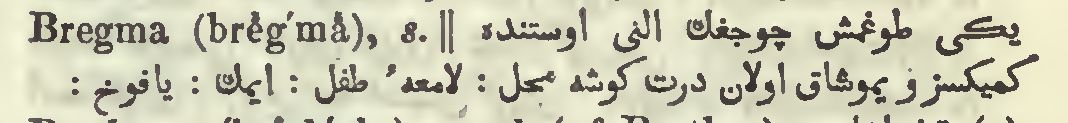 Bregma (brĕg′må), s. || يڭى طوغمش چوجغڭ النى اوستنده
كميكسز و يموشاق اولان درت كوشه محل : لامعهٔ طفل : ايمك : يافوخ :